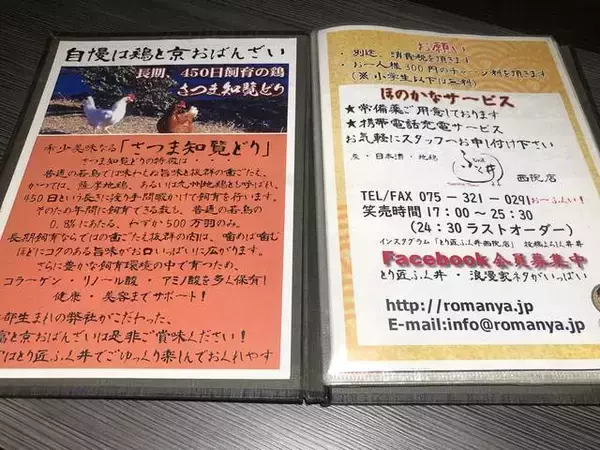 自慢は鶏と京おばんざい
長期、450日飼育の鶏
さつま知覧どり
希少美味なる「さつま知覧どり」
さつま知覧どりの特徴は・・
普通の若鳥では味わえぬ旨味と抜群の歯ごたえ。
かつては、薩摩地鶏、あるいは九州地鶏とも呼ばれ、
450日という長きに渡り手間暇かけて飼育を行います。
そのため年間に飼育できる数も、普通の若鳥の
0.8%にあたる、わずか500万羽のみ。
長期飼育ならではの歯ごたえ抜群の肉は、噛めば噛む
ほどにコクのある旨味がお口いっぱいに広がります。
さらに豊かな飼育環境の中で育つため、
コラーゲン・リノール酸・アミノ酸を多く保有!
健康・美容までサポート!
都生まれの弊社がこだわった、
京おばんざいを是非ご賞味ください!
はとり匠ふく井でごゆっくり楽しんでおくれやす
お願い
・別途、消費税を頂きます
・お一人様300円のチャージ料を頂きます
(※小学生以下は無料)
ほのかなサービス
★常備薬ご用意しております
★携帯電話充電サービス
お気軽にスタッフへお申し付け下さい
炭・日本酒・地鶏
ふく井
西院店
TEL/FAX 075-321-0291お〜ふくい!
笑売時間 17:00〜25:30
(24:30 ラストオーダー)
インスタグラム「とり匠ふく井西院店」投稿よろしく丼丼
Facebook 会員募集中
とり匠ふく井・浪漫家ネタがいっぱい
http://romanya.jp
E-mail:info@romanya.jp